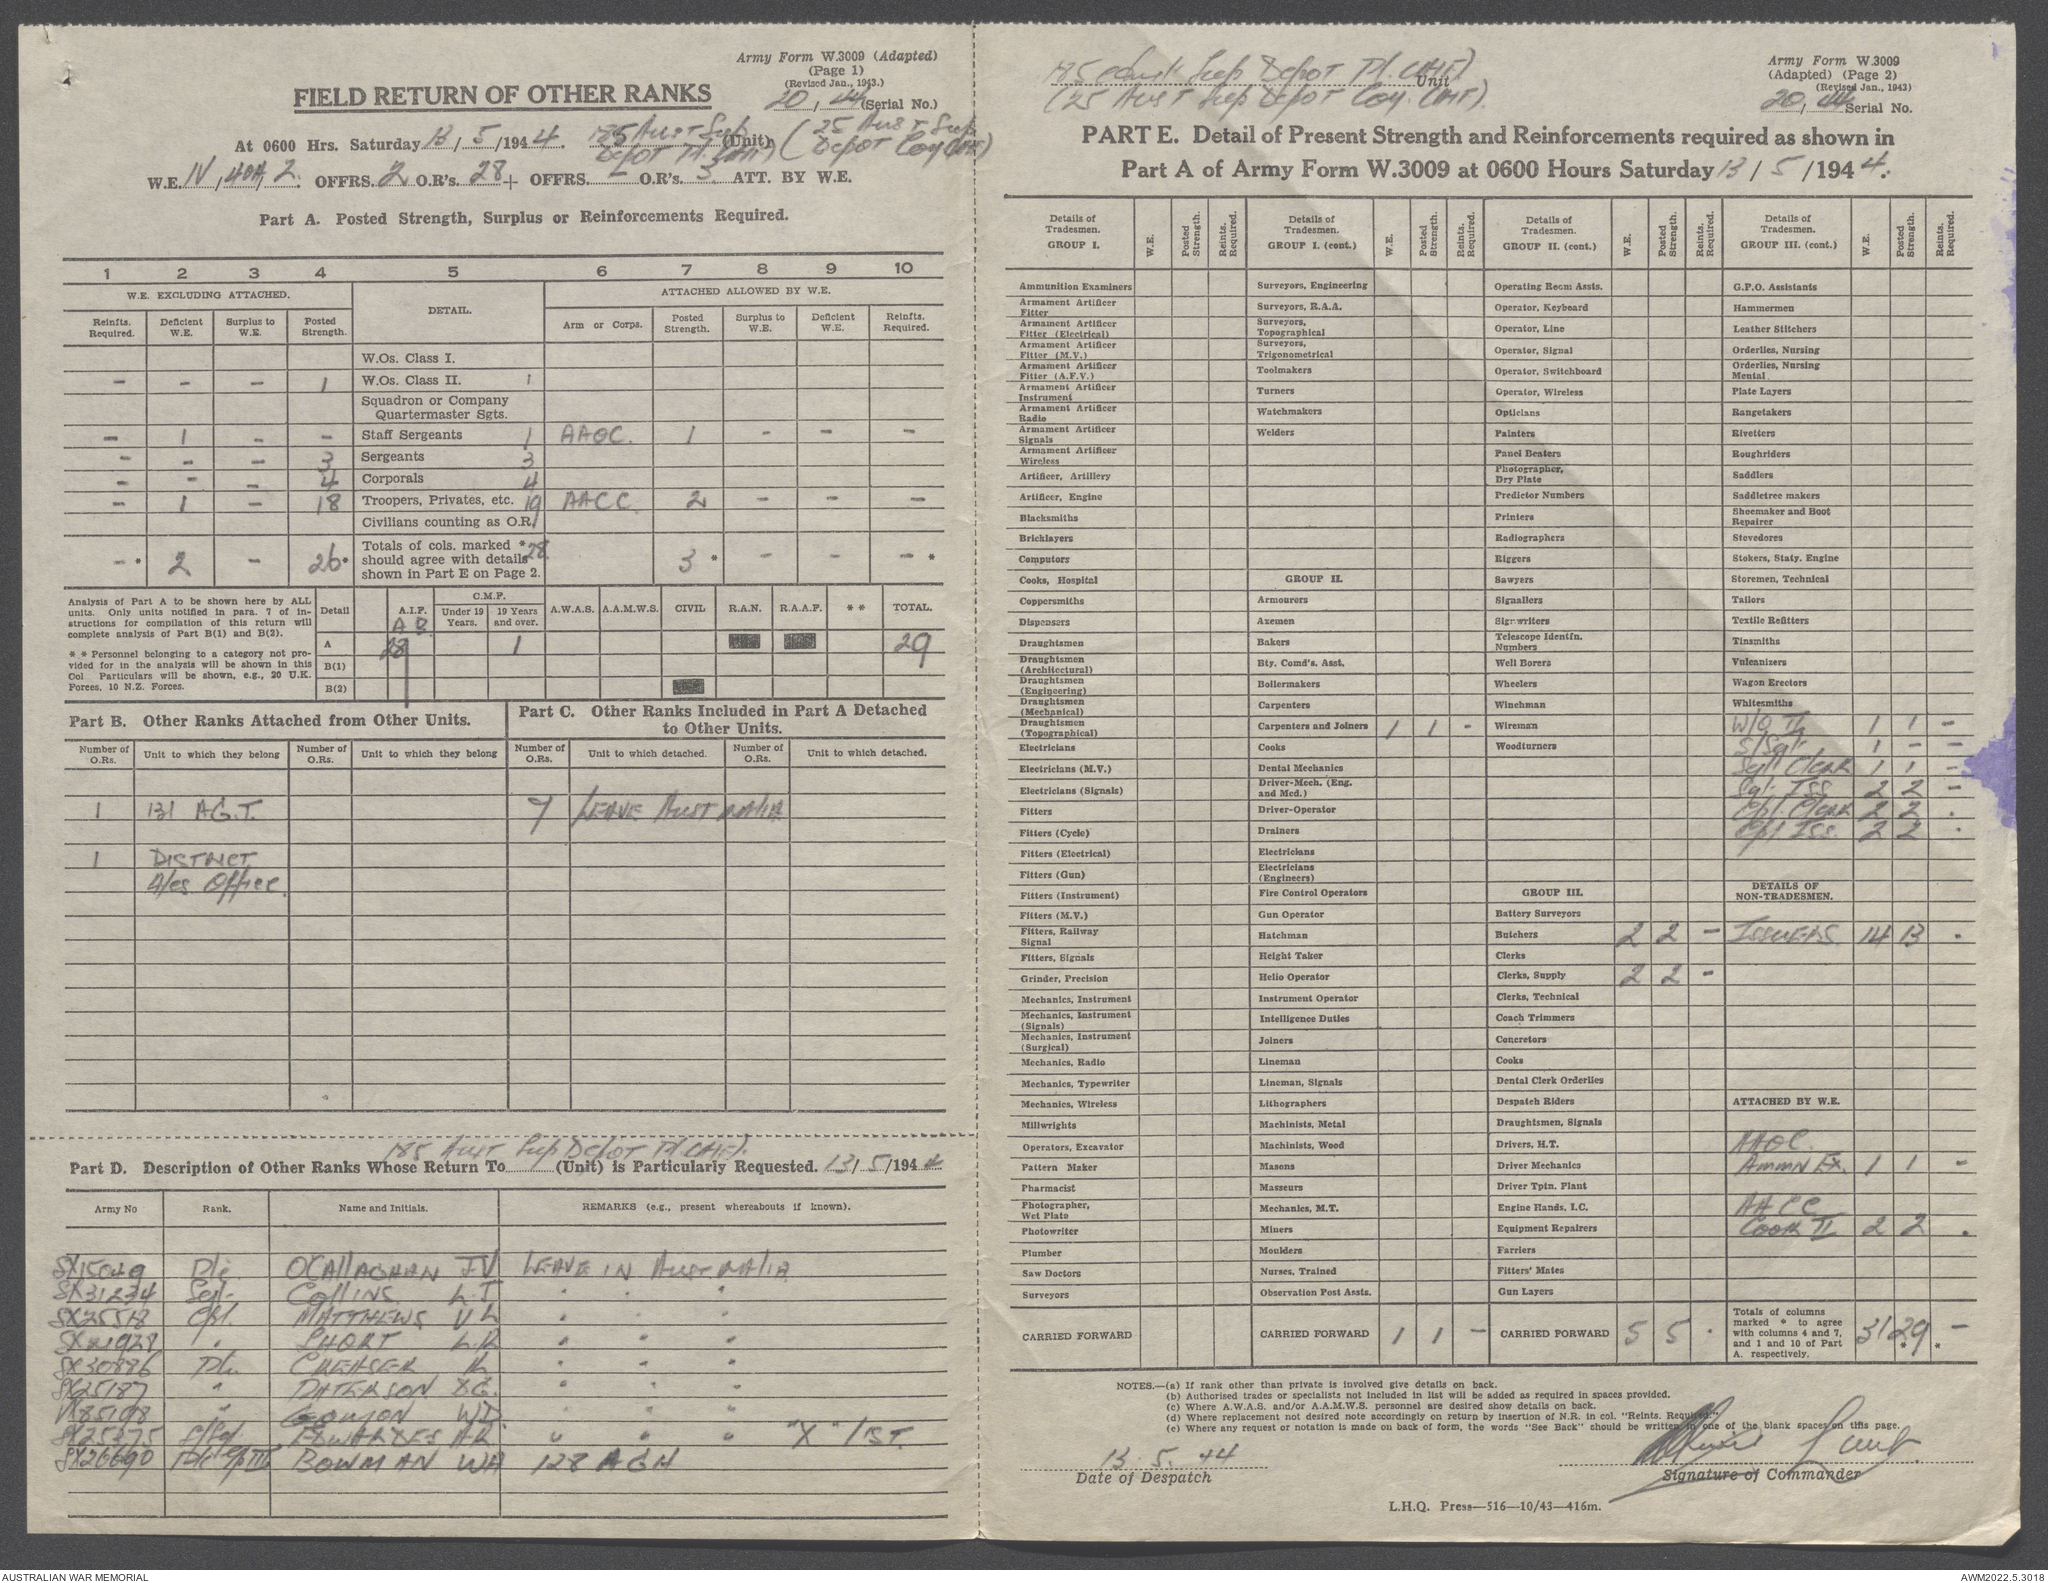 Army Form W.3009 (Adapted)
(Page 1)
(Revised Jan., 1943.)
FIELD RETURN OF OTHER RANKS
20, 44 (Serial No.)
At 0600 Hrs. Saturday 13/5/1944. 185 Aust Sup (Unit) (25 Aust Sup
Depot Pl. (AIF) Depot Coy (AIF)
W.E. IV, 40A, 2. OFFRS. 2 O.R's. 28 + OFFRS. - O.R's. 3 ATT. BY W.E.
Part A. Posted Strength, Surplus or Reinforcements Required.
1 2 3 4 5 6 7 8 9 10
W.E. EXCLUDING ATTACHED. DETAIL. ATTACHED ALLOWED BY W.E.
Reinfts. Required. Deficient W.E. Surplus to W.E. Posted Strength. Arm or Corps. Posted Strength. Surplus to W.E. Deficient W.E. Reinfts. Required.
W.Os. Class I.
- - - 1 W.Os. Class II. 1
Squadron or Company
Quartermaster Sgts.
- 1 - - Staff Sergeants 1 AAOC. 1 - - -
- - - 3 Sergeants 3
- - - 4 Corporals 4
- 1 - 18 Troopers, Privates, etc. 19 AACC 2 - - -
Civilians counting as O.R.
- * 2 - 26 * Totals of cols. marked * should agree with details shown in Part E on Page 2. 28 3 * - - - *
Analysis of Part A to be shown here by ALL units. Only units notified in para. 7 of instructions for compilation of this return will complete analysis of Part B(1) and B(2).
* * Personnel belonging to a category not provided for in the analysis will be shown in this Col Particulars will be shown, e.g., 20 U.K. Forces, 10 N.Z. Forces.
Detail A.I.F. C.M.F. Under 19 Years. 19 Years and over. A.W.A.S. A.A.M.W.S. CIVIL R.A.N. R.A.A.F. * * TOTAL.
A B
A 28 1 29
B(1)
B(2)
Part B. Other Ranks Attached from Other Units. Part C. Other Ranks Included in Part A Detached to Other Units.
Number of O.Rs. Unit to which they belong Number of O.Rs. Unit to which they belong Number of O.Rs. Unit to which detached. Number of O.Rs. Unit to which detached.
1 131 A.G.T. 7 LEAVE AUSTRALIA
1 DISTRICT
A/cs Office.
185 Aust Sup Depot Pl (AIF).
Part D. Description of Other Ranks Whose Return To (Unit) is Particularly Requested. 13/5/1944
Army No Rank. Name and Initials. REMARKS (e.g., present whereabouts if known).
SX15049 Pte O'CALLAGHAN JV LEAVE IN AUSTRALIA
SX31234 Sgt. COLLINS L.J " " "
SX25518 Cpl MATTHEWS V L " " "
SX21928 " SHORT L.R " " "
SX30886 Pte. CREASER R " " "
SX25187 " PATERSON X.G. " " "
VX85198 " W.D. " " "
SX25375 S/Sgt EDWARDES AR " " " "X" 1ST.
SX26690 Pte Gp III BOWMAN WA 128 AGH
185 Aust Sup Depot Pl. (AIF) Unit
(25 Aust Sup Depot Coy. (AIF)
Army Form W.3009
(Adapted) (Page 2)
(Revised Jan., 1943)
20, 44 Serial No.
PART E. Detail of Present Strength and Reinforcements required as shown in
Part A of Army Form W.3009 at 0600 Hours Saturday 13/5/1944.
Details of Tradesmen. GROUP I. W.E. Posted Strength. Reints. Required.
Ammunition Examiners
Armament Artificer Fitter
Armament Artificer Fitter (Electrical)
Armament Artificer Fitter (M.V.)
Armament Artificer Fitter (A.F.V.)
Armament Artificer Instrument
Armament Artificer Radio
Armament Artificer Signals
Armament Artificer Wireless
Artificer, Artillery
Artificer, Engine
Blacksmiths
Bricklayers
Computors
Cooks, Hospital
Coppersmiths
Dispensers
Draughtsmen
Draughtsmen (Architectural)
Draughtsmen (Engineering)
Draughtsmen (Mechanical)
Draughtsmen (Topographical)
Electricians
Electricians (M.V.)
Electricians (Signals)
Fitters
Fitters (Cycle)
Fitters (Electrical)
Fitters (Gun)
Fitters (Instrument)
Fitters (M.V.)
Fitters, Railway Signal
Fitters, Signals
Grinder, Precision
Mechanics, Instrument
Mechanics, Instrument (Signals)
Mechanics, Instrument (Surgical)
Mechanics, Radio
Mechanics, Typewriter
Mechanics, Wireless
Millwrights
Operators, Excavator
Pattern Maker
Pharmacist
Photographer, Wet Plate
Photowriter
Plumber
Saw Doctors
Surveyors
CARRIED FORWARD
Details of Tradesmen. GROUP I. (cont.) W.E. Posted Strength. Reints. Required.
Surveyors, Engineering
Surveyors, R.A.A.
Surveyors, Topographical
Surveyors, Trigonometrical
Toolmakers
Turners
Watchmakers
Welders
GROUP II.
Armourers
Axemen
Bakers
Bty. Comd's. Asst.
Boilermakers
Carpenters
Carpenters and Joiners 1 1 -
Cooks
Dental Mechanics
Driver-Mech. (Eng. and Med.)
Driver-Operator
Drainers
Electricians
Electricians (Engineers)
Fire Control Operators
Gun Operator
Hatchman
Height Taker
Helio Operator
Instrument Operator
Intelligence Duties
Joiners
Lineman
Lineman, Signals
Lithographers
Machinists, Metal
Machinists, Wood
Masons
Masseurs
Mechanics, M.T.
Miners
Moulders
Nurses, Trained
Observation Post Assts.
CARRIED FORWARD 1 1 -
Details of Tradesmen. GROUP II. (cont.) W.E. Posted Strength. Reints. Required.
Operating Room Assts.
Operator, Keyboard
Operator, Line
Operator, Signal
Operator, Switchboard
Operator, Wireless
Opticians
Painters
Panel Beaters
Photographer, Dry Plate
Predictor Numbers
Printers
Radiographers
Riggers
Sawyers
Signallers
Signwriters
Telescope Identfn. Numbers
Well Borers
Wheelers
Winchman
Wireman
Woodturners
GROUP III.
Battery Surveyors
Butchers 2 2 -
Clerks
Clerks, Supply 2 2 -
Clerks, Technical
Coach Trimmers
Concretors
Cooks
Dental Clerk Orderlies
Despatch Riders
Draughtsmen, Signals
Drivers, H.T.
Driver Mechanics
Driver Tptn. Plant
Engine Hands, I.C.
Equipment Repairers
Farriers
Fitters' Mates
Gun Layers
CARRIED FORWARD 5 5 -
Details of Tradesmen. GROUP III. (cont.) W.E. Posted Strength. Reints. Required.
G.P.O. Assistants
Hammermen
Leather Stitchers
Orderlies, Nursing
Orderlies, Nursing Mental
Plate Layers
Rangetakers
Rivetters
Roughriders
Saddlers
Saddletree makers
Shoemaker and Boot Repairer
Stevedores
Stokers, Staty. Engine
Storemen, Technical
Tailors
Textile Refitters
Tinsmiths
Vulcanizers
Wagon Erectors
Whitesmiths
W/O II 1 1 -
S/Sgt. 1 - -
Sgt Clerk 1 1 -
Sgt. Iss 2 2 -
Cpl. Clerk 2 2 .
Cpl Iss. 2 2 .
DETAILS OF NON-TRADESMEN.
ISSUERS 14 13 .
ATTACHED BY W.E.
AAOC.
Ammn Ex. 1 1 -
AACC
Cook II 2 2 .
Totals of columns marked * to agree with columns 4 and 7, and 1 and 10 of Part A. respectively. 31 29 * - *
NOTES.—(a) If rank other than private is involved give details on back.
(b) Authorised trades or specialists not included in list will be added as required in spaces provided.
(c) Where A.W.A.S. and/or A.A.M.W.S. personnel are desired show details on back.
(d) Where replacement not desired note accordingly on return by insertion of N.R. in col. "Reints. Required."
(e) Where any request or notation is made on back of form, the words "See Back" should be written in one of the blank spaces on this page.
13. 5. 44
Date of Despatch
Signature of Commander
L.H.Q. Press—516—10/43—416m.
AUSTRALIAN WAR MEMORIAL
AWM2022.5.3018